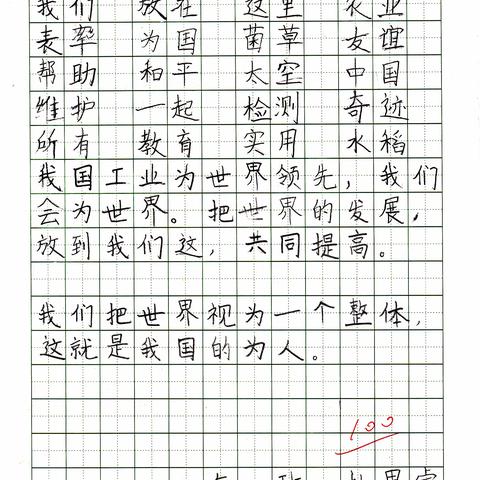 我们 放在 这里 农业
表率 为国 菌草 友谊
帮助 和平 太空 中国
维护 一起 检测 奇迹
所有 教育 实用 水稻
我国工业为世界领先，我们
会为世界。把世界的发展，
放到我们这，共同提高。
我们把世界视为一个整体，
这就是我国的为人。
100